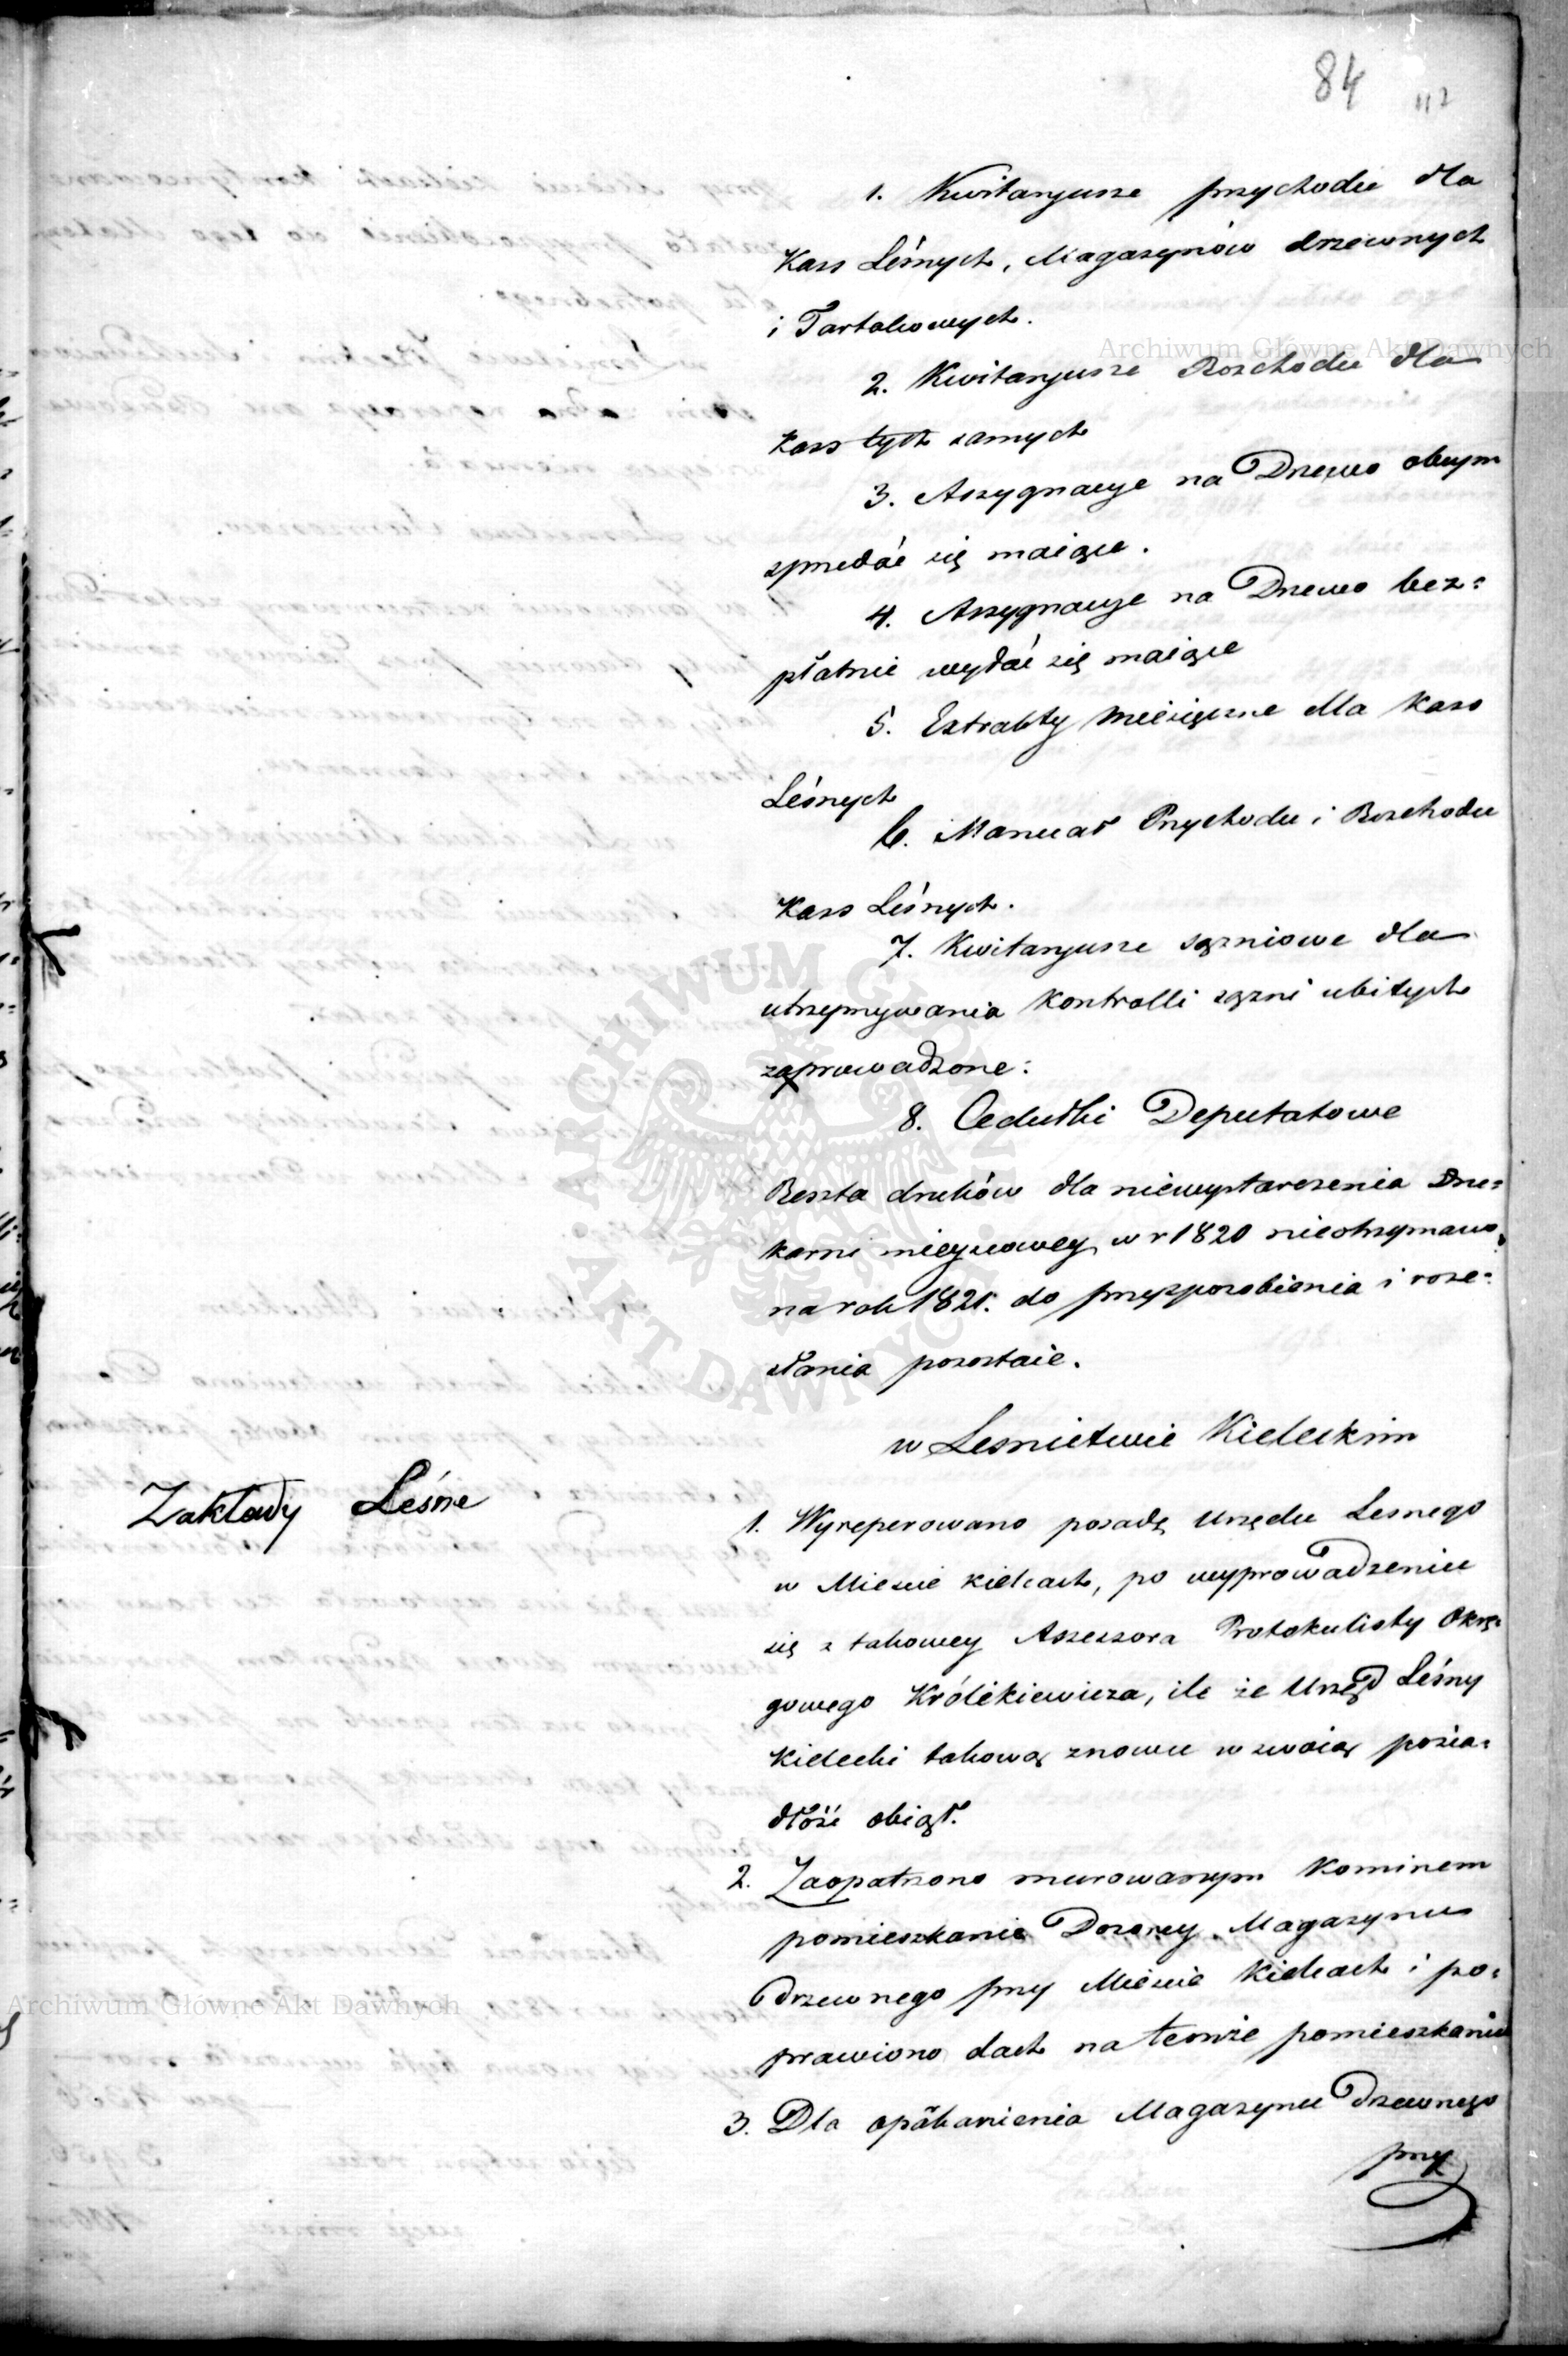 84 112
1. Kwitaryusze przychodu dla
Kass Leśnych, Magazynów drzewnych
i Tartakowych.
2. Kwitaryusze Rozchodu dla
Kass tych samych
3. Assygnacye na Drzewo obcym
sprzedać się maiące.
4. Assygnacye na Drzewo bez=
płatnie wydać się maiące
5. Extrakty miesięczne dla Kass
Leśnych
6. Manuał Przychodu i Rozchodu
Kass Leśnych.
7. Kwitaryusze sążniowe dla
utrzymywania Kontrolli sążni ubitych
zaprowadzone:
8. Cedułki Deputatowe
Reszta druków dla niewystarczenia Dru=
karni mieyscowey w r 1820 nieotrzymano,
na rok 1821. do przysposobienia i roze=
słania pozostaie.
w Lesnictwie Kieleckim
Zakłady Leśne
1. Wyreperowano posadę Urzędu Lesnego
w Miescie Kielcach, po wyprowadzeniu
się z takowey Assessora Protokulisty Okrę=
gowego Królikiewicza, ile że Urząd Leśny
Kielecki takową znowu w swoią posia=
dłość obiął.
2. Zaopatrzono murowanym Kominem
pomieszkanie Dozorcy Magazynu
Drzewnego przy Miescie Kielcach i po=
prawiono dach na temże pomieszkaniu
3. Dla opárkanienia Magazynu Drzewnego
przy
Archiwum Główne Akt Dawnych
Archiwum Główne Akt Dawnych
ARCHIWUM GŁÓWNE AKT DAWNYCH